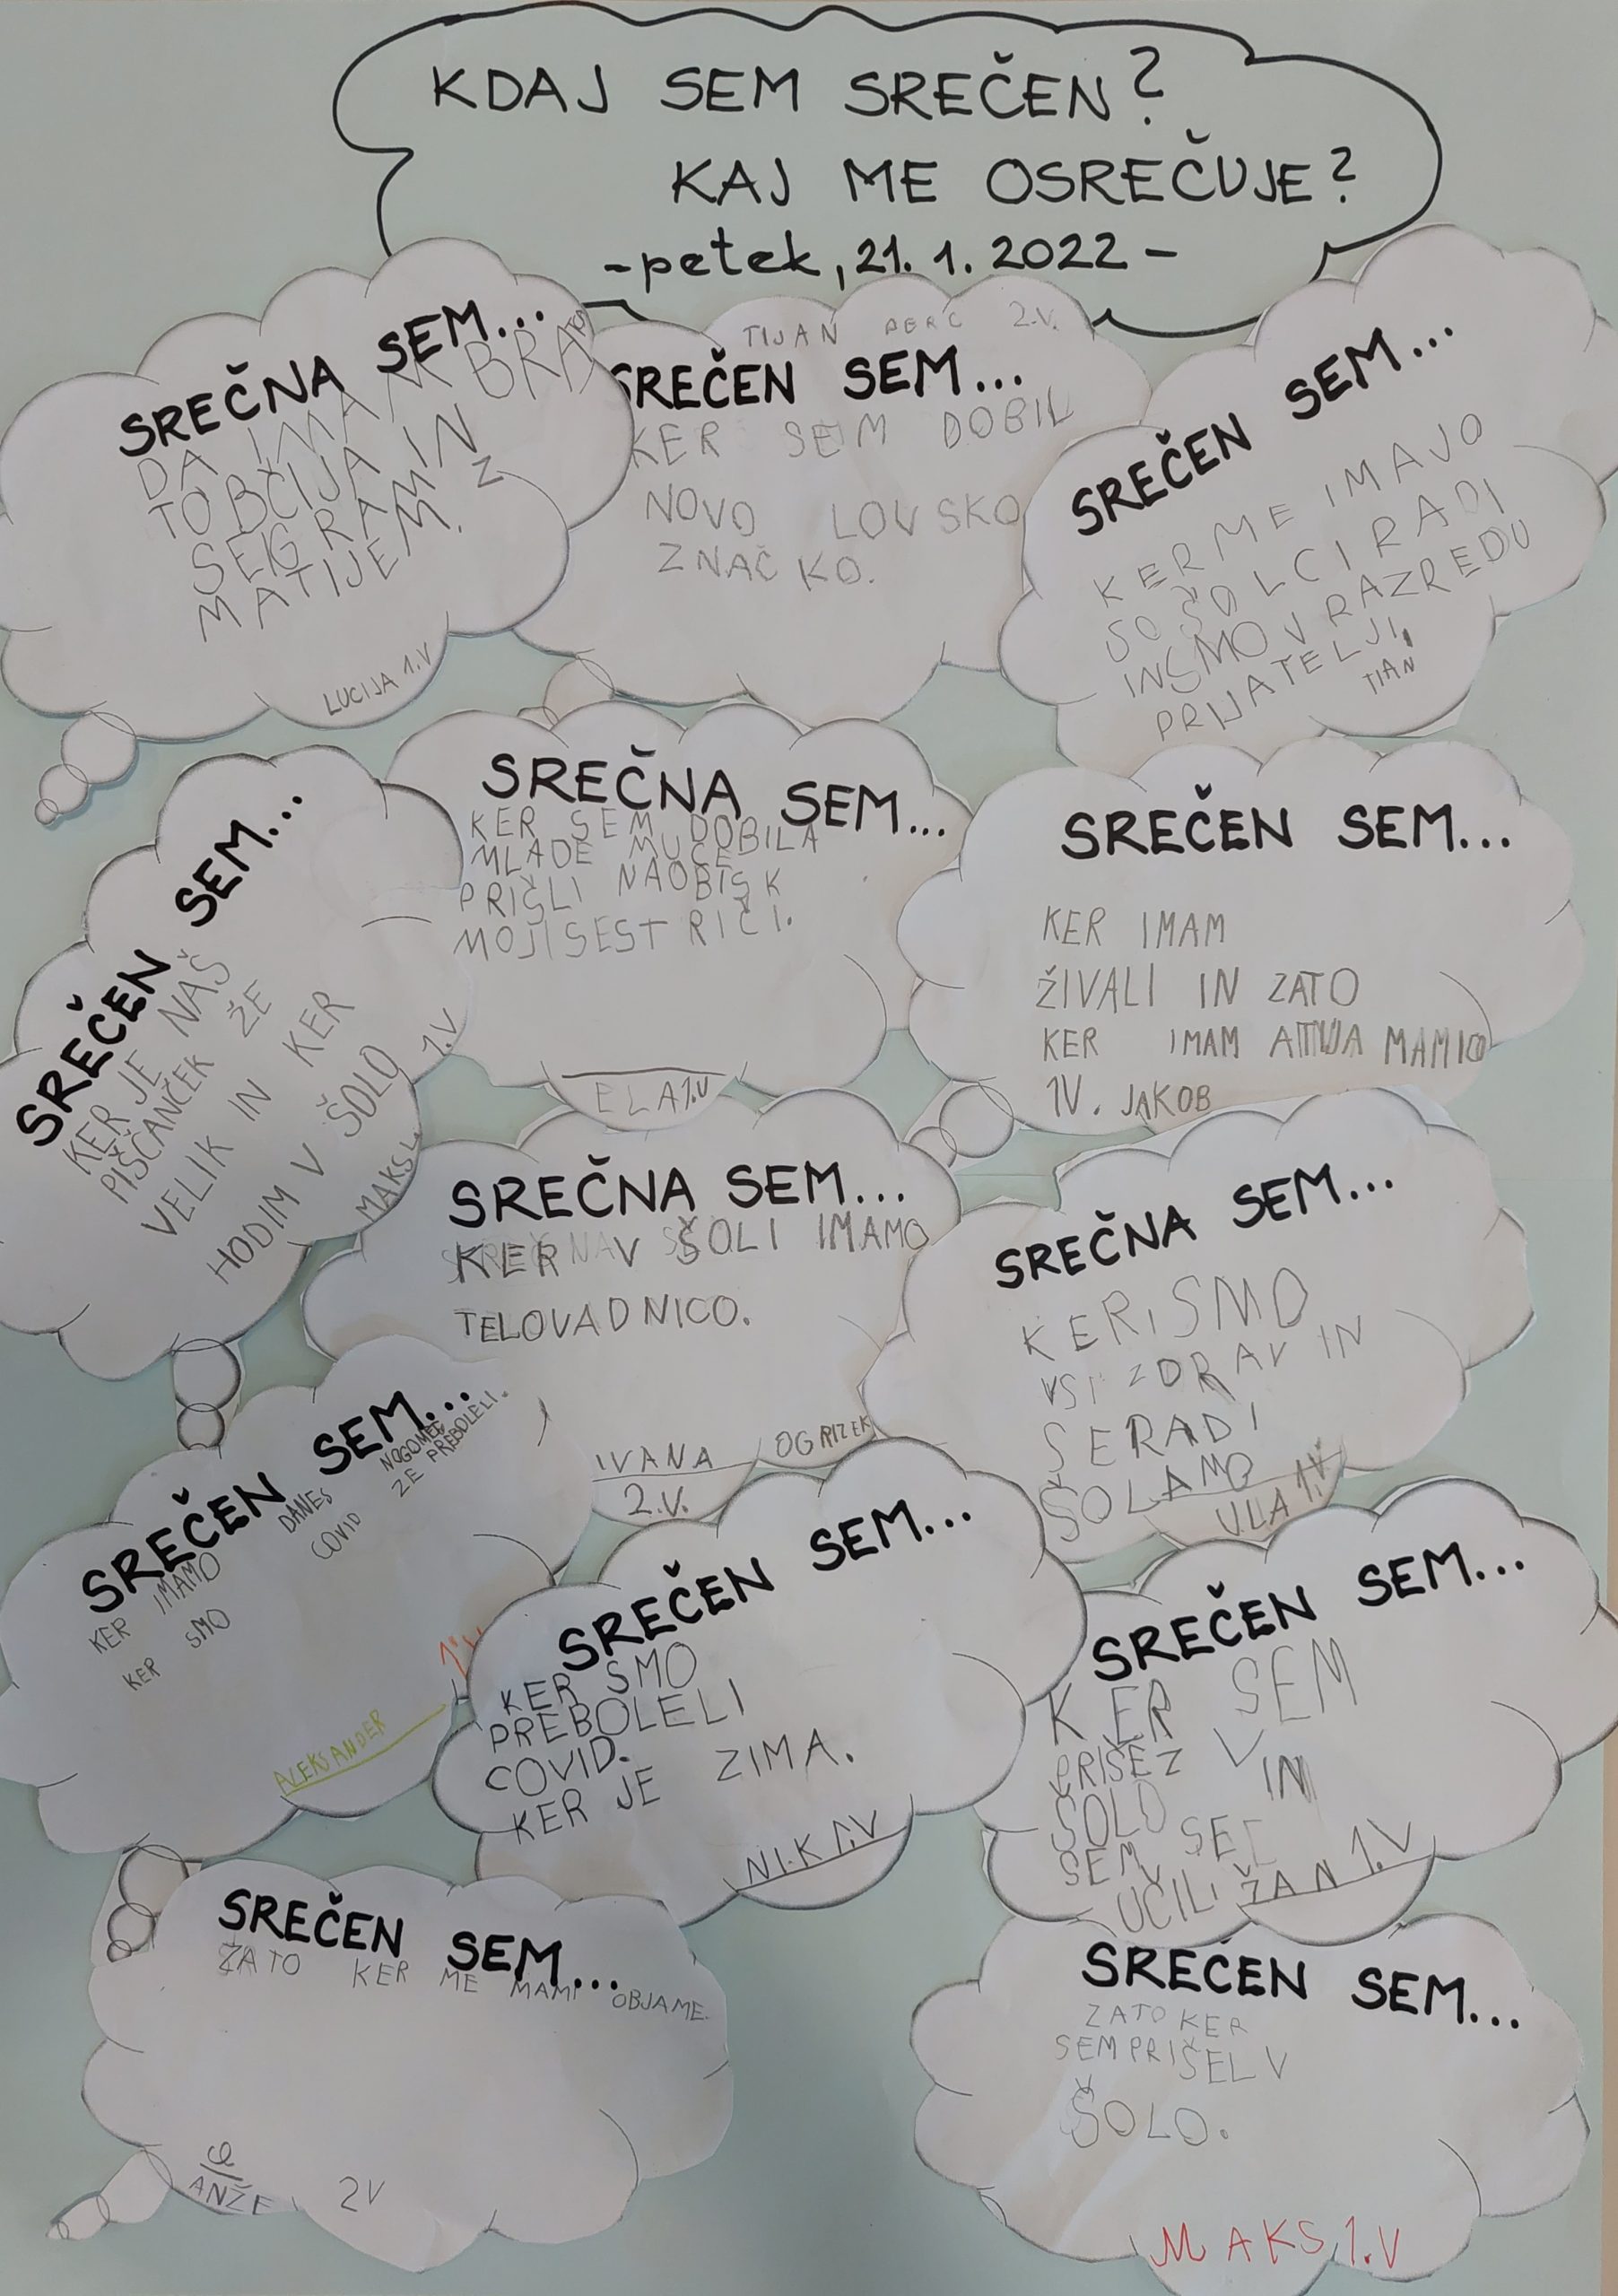 KDAJ SEM SREČEN?
KAJ ME OSREČUJE?
-petek, 21. 1. 2022-
SREČNA SEM...
DA IMAM BRA
TOBČIJA IN
SEIGRAM Z
MATIJEM.
LUCIJA 1.V
TIJAN PERC 2.V.
SREČEN SEM...
KER SEM DOBIL
NOVO LOVSKO
ZNAČKO.
SREČEN SEM...
KER ME IMAJO
SOŠOLCI RADI
INSMO V RAZREDU
PRIJATELJI.
TIAN
SREČEN SEM...
KER JE NAŠ
PIŠČANČEK ŽE
VELIK IN KER
HODIM V ŠOLO
MAKS L. 1.V
SREČNA SEM...
KER SEM DOBILA
MLADE MUCE
PRIŠLI NAOBISK
MOJISESTRIČI.
ELA1.V
SREČEN SEM...
KER IMAM
ŽIVALI IN ZATO
KER IMAM MAMIO
1V. JAKOB
SREČNA SEM...
KER V ŠOLI IMAMO
TELOVADNICO.
IVANA OGRIZEK
2.V.
SREČNA SEM...
KERISMO
VSI ZDRAV IN
SERADI
ŠOLAMO
ULA 1.V
SREČEN SEM...
KER IMAMO DANES NOGOMET
KER SMO COVID ŽE PREBOLELI.
1.V
ALEKSANDER
SREČEN SEM...
KER SMO
PREBOLELI
COVID.
KER JE ZIMA.
NIK 1.V
SREČEN SEM...
KER SEM
PRIŠEZ V
ŠOLO IN
SEM SE
UČILI
ŽAN 1.V
SREČEN SEM...
ZATO KER ME MAMI OBJAME.
ANŽE 2V
SREČEN SEM...
ZATO KER
SEMPRIŠEL V
ŠOLO.
MAKS 1.V